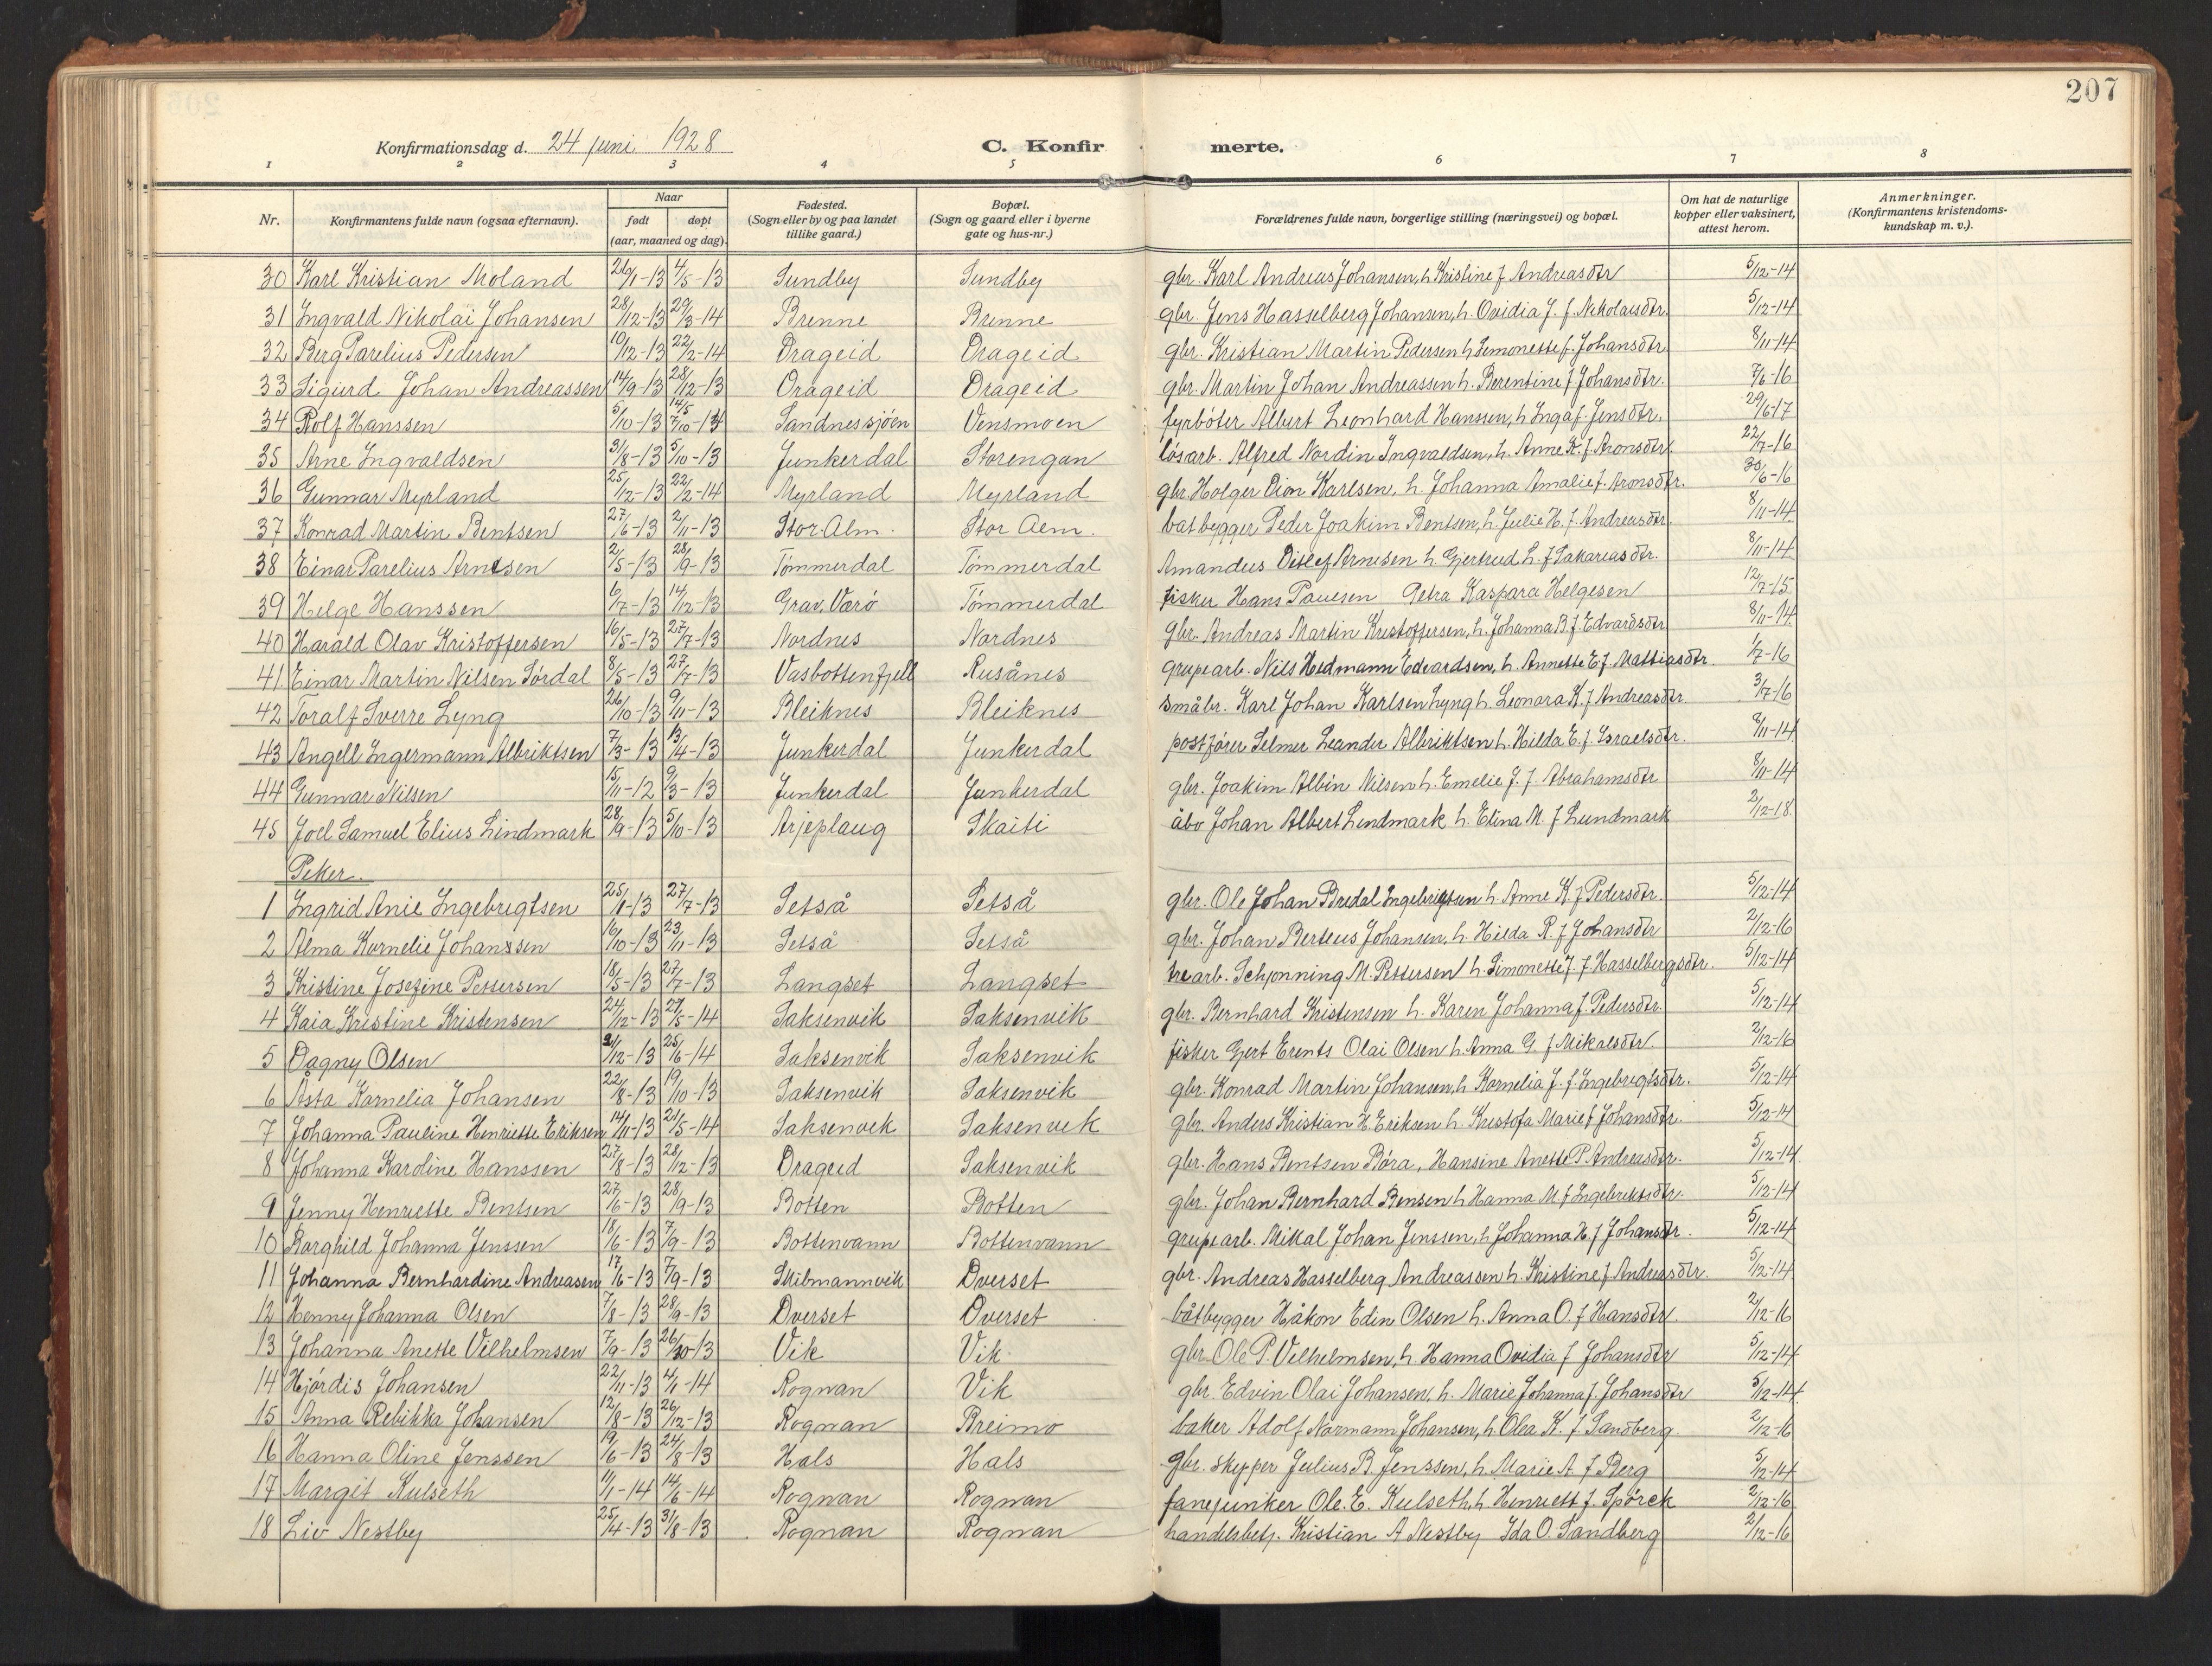 207
Konfirmationsdag d. 24 juni 1928 C. Konfir merte.
1 2 3 4 5 6 7 8
Nr. Konfirmantens fulde navn (ogsaa efternavn). Naar født døpt (aar, maaned og dag). Fødested. (Sogn eller by og paa landet tillike gaard.) Bopæl. (Sogn og gaard eller i byerne gate og hus-nr.) Forældrenes fulde navn, borgerlige stilling (næringsvei) og bopæl. Om hat de naturlige kopper eller vaksinert, attest herom. Anmerkninger. (Konfirmantens kristendoms-kundskap m. v.).
30 Karl Kristian Moland 26/1-13 4/5-13 Sundby Sundby gbr. Karl Andreas Johansen, h. Kristine f. Andreasdtr 5/12-14
31 Ingvald Nikolai Johansen 28/12-13 29/3-14 Brenne Brenne gbr. Jens Hasselberg Johansen, h. Ovidia J. f. Nikolaisdtr. 5/12-14
32 Berg Parelius Pedersen 10/12-13 22/2-14 Drageid Drageid gbr. Kristian Martin Pedersen h. Simonette f. Johansdtr 8/11-14
33 Sigurd Johan Andreassen 14/9-13 28/12-13 Drageid Drageid gbr. Martin Johan Andreassen h. Berentine f Johansdtr. 7/6-16
34 Rolf Hanssen 5/10-13 Sandnessjøen Vensmoen fyrbøter Albert Leonhard Hanssen, h Inga f. Jensdtr. 29/6-17
35 Arne Ingvaldsen 3/8-13 5/10-13 Junkerdal Storengan løsarb. Alfred Nordin Ingvaldsen, h. Anne K. f. Aronsdtr. 22/7-16
36 Gunnar Myrland 25/12-13 22/2-14 Myrland Myrland gbr. Holger Dion Karlsen, h. Johanna Amalie f. Aronsdtr. 30/6-16
37 Konrad Martin Bentsen 27/6-13 2/11-13 Stor-Alm. Stor Alm. batbygger Peder Joakim Bentsen, h. Julie H. f. Andreasdtr. 8/11-14
38 Einar Parelius Arntsen 2/5-13 28/9-13 Tømmerdal Tømmerdal Amandus Ditlef Arntsen h Gjertrud L. f Sakariasdtr. 8/11-14
39 Helge Hanssen 6/7-13 14/12-13 Grav, Værø Tømmerdal fisker Hans Paulsen Petra Kaspara Helgesen 12/7-15
40 Harald Olav Kristoffersen 16/5-13 27/7-13 Nordnes Nordnes gbr. Andreas Martin Kristoffersen, h. Johanna B. f Edvardsdtr 8/11-14
41 Einar Martin Nilsen Sørdal 8/5-13 27/7-13 Vasbottenfjell Rusånes grupearb. Nils Hedmann Edvardsen, h. Annette E. f. Mattiasdtr. 1/7-16
42 Toralf Sverre Lyng 26/10-13 9/11-13 Bleiknes Bleiknes småbr. Karl Johan Karlsen Lyng h. Leonora K. f Andreasdtr 3/7-16
43 Angell Ingermann Albriktsen 7/3-13 13/4-13 Junkerdal Junkerdal postfører Selmer Leander Albriktsen h. Hilda E. f. Israelsdtr. 8/11-14
44 Gunnar Nilsen 15/11-12 9/3-13 Junkerdal Junkerdal gbr. Joakim Albin Nilsen h. Emelie J. f. Abrahamsdtr 8/11-14
45 Joel Samuel Elius Lindmark 28/9-13 5/10-13 Arjeplaug Skaiti åbo Johan Albert Lindmark h. Elina M. f Lundmark 2/12-18
Piker.
1 Ingrid Anie Ingebrigtsen 25/1-13 27/7-13 Setså Setså gbr. Ole Johan Bredal Ingebrigtsen h. Anne K. f Pedersdtr. 5/12-14
2 Alma Kornelie Johanssen 16/10-13 23/11-13 Setså Setså gbr. Johan Berteus Johansen, h. Hilda R. f Johansdtr 2/12-16
3 Kristine Josefine Pettersen 18/5-13 27/7-13 Langset Langset trearb. Schjønning M. Pettersen h. Simonette J. f Hasselbergsdtr. 5/12-14
4 Kaia Kristine Kristensen 24/12-13 21/5-14 Saksenvik Saksenvik gbr. Bernhard Kristensen h. Karen Johanna f. Pedersdtr. 5/12-14
5 Dagny Olsen 21/12-13 25/6-14 Saksenvik Saksenvik fisker Gjert Erents Olai Olsen h. Anna G. f Mikalsdtr. 2/12-16
6 Åsta Kornelia Johansen 22/8-13 19/10-13 Saksenvik Saksenvik gbr. Konrad Martin Johansen, h. Kornelia J. f. Ingebrigtsdtr. 5/12-14
7 Johanna Pauline Henriette Eriksen 14/11-13 21/5-14 Saksenvik Saksenvik gbr. Anders Kristian H. Eriksen h. Kristofa Marie f Johansdtr. 5/12-14
8 Johanna Karoline Hanssen 27/8-13 28/12-13 Drageid Saksenvik gbr. Hans Bentsen Børa, Hansine Anette P. Andreasdtr. 5/12-14
9 Jenny Henriette Bentsen 27/6-13 28/9-13 Botten Botten gbr. Johan Bernhard Bensen h Hanna M. f Ingebriktsdtr. 5/12-14
10 Borghild Johanna Jenssen 18/6-13 7/9-13 Bottenvann Bottenvann grupearb. Mikal Johan Jenssen, h Johanna H. f Johansdtr. 5/12-14
11 Johanna Bernhardine Andreasen 17/6-13 7/9-13 Skibmannvik Dverset gbr. Andreas Hasselberg Andreassen h. Kristine f. Andreasdtr. 5/12-14
12 Henny Johanna Olsen 7/8-13 28/9-13 Dverset Dverset båtbygger Håkon Edin Olsen h. Anna O. f Hansdtr. 2/12-16
13 Johanna Anette Vilhelmsen 7/9-13 26/10-13 Vik Vik gbr. Ole P. Vilhelmsen, h. Hanna Ovidia f Johansdtr 5/12-14
14 Hjørdis Johansen 22/11-13 4/1-14 Rognan Vik gbr. Edvin Olai Johansen, h. Marie Johanna f. Johansdtr 5/12-14
15 Anna Rebikka Johansen 12/8-13 26/12-13 Rognan Breimo baker Adolf Normann Johansen, h. Olea K. f Sandberg. 2/12-16
16 Hanna Oline Jenssen 19/6-13 24/8-13 Hals Hals gbr. skipper Julius B. Jenssen, h. Marie A. f Berg 5/12-14
17 Margit Kulseth 11/1-14 14/6-14 Rognan Rognan fanejunker Ole. E. Kulseth, h Henriett f. Spørck 2/12-16
18 Liv Nestby 25/4-13 31/8-13 Rognan Rognan handelsbetj. Kristian A Nestby Ida O. Sandberg 2/12-16